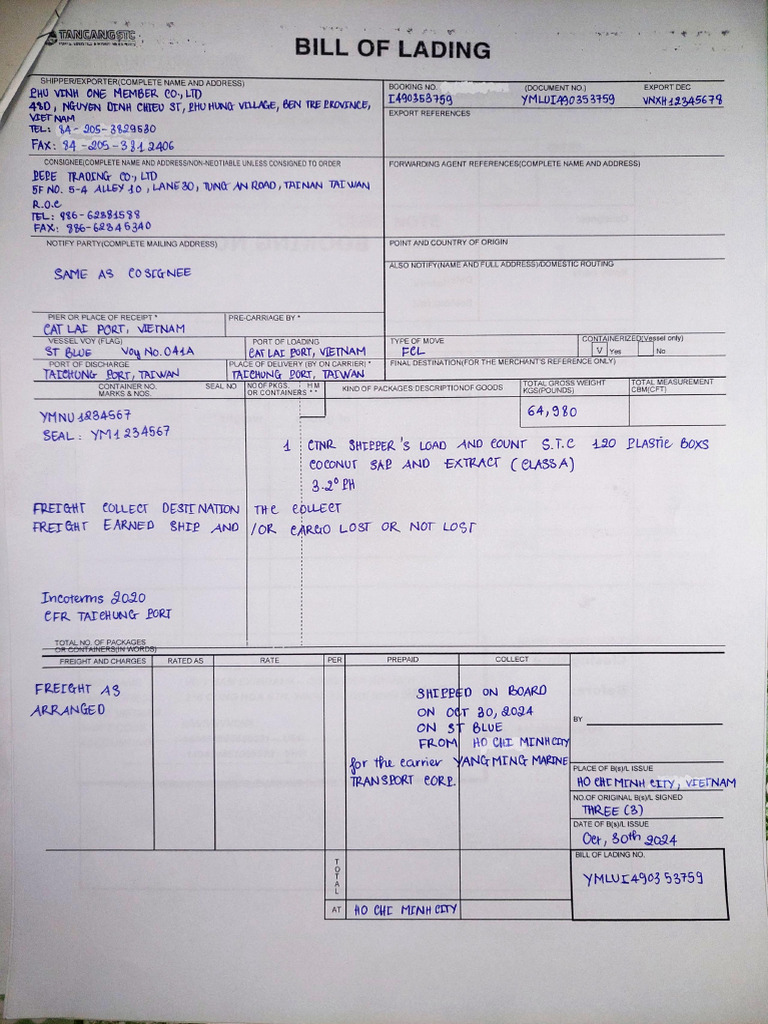 TANCANG STC
BILL OF LADING
SHIPPER/EXPORTER(COMPLETE NAME AND ADDRESS)
PHU VINH ONE MEMBER CO., LTD
48D, NGUYEN DINH CHIEU ST, PHU HUNG VILLAGE, BEN TRE PROVINCE,
VIET NAM
TEL: 84-205-3829530
FAX: 84-205-3812406
BOOKING NO.
I490353759
(DOCUMENT NO.)
YMLUI490353759
EXPORT DEC
VNXH12345678
EXPORT REFERENCES
CONSIGNEE(COMPLETE NAME AND ADDRESS/NON-NEOTIABLE UNLESS CONSIGNED TO ORDER
PEPE TRADING CO., LTD
5F NO. 5-4 ALLEY 10, LANE 30, TUNG AN ROAD, TAINAN TAIWAN
R.O.C
TEL: 886-62381588
FAX: 886-62345340
FORWARDING AGENT REFERENCES(COMPLETE NAME AND ADDRESS)
NOTIFY PARTY(COMPLETE MAILING ADDRESS)
SAME AS COSIGNEE
POINT AND COUNTRY OF ORIGIN
ALSO NOTIFY(NAME AND FULL ADDRESS)/DOMESTIC ROUTING
PIER OR PLACE OF RECEIPT *
CAT LAI PORT, VIETNAM
PRE-CARRIAGE BY *
VESSEL VOY (FLAG)
ST BLUE Voy No. 041A
PORT OF LOADING
CAT LAI PORT, VIETNAM
TYPE OF MOVE
FCL
CONTAINERIZED(Vessel only)
V Yes No
PORT OF DISCHARGE
TAICHUNG PORT, TAIWAN
PLACE OF DELIVERY (BY ON CARRIER) *
TAICHUNG PORT, TAIWAN
FINAL DESTINATION(FOR THE MERCHANT'S REFERENCE ONLY)
CONTAINER NO. SEAL NO
MARKS & NOS.
NO OF PKGS.
OR CONTAINERS * *
H M
KIND OF PACKAGES:DESCRIPTIONOF GOODS
TOTAL GROSS WEIGHT
KGS(POUNDS)
TOTAL MEASUREMENT
CBM(CFT)
64,980
YMNU1234567
SEAL: YM1234567
1 CTNR SHIPPER'S LOAD AND COUNT S.T.C 120 PLASTIC BOXS
COCONUT SAP AND EXTRACT (CLASS A)
3.2° PH
FREIGHT COLLECT DESTINATION THC COLLECT
FREIGHT EARNED SHIP AND /OR CARGO LOST OR NOT LOST
Incoterms 2020
CFR TAICHUNG PORT
TOTAL NO. OF PACKAGES
OR CONTAINERS(IN WORDS)
FREIGHT AND CHARGES
RATED AS
RATE
PER
PREPAID
COLLECT
FREIGHT AS
ARRANGED
SHIPPED ON BOARD
ON OCT 30, 2024
ON ST BLUE
FROM HO CHI MINH CITY
for the carrier YANG MING MARINE
TRANSPORT CORP.
BY
PLACE OF B(s)/L ISSUE
HO CHI MINH CITY, VIETNAM
NO.OF ORIGINAL B(s)/L SIGNED
THREE (3)
DATE OF B(s)/L ISSUE
Oct, 30th 2024
BILL OF LADING NO.
YMLUI490353759
TOTAL
AT
HO CHI MINH CITY